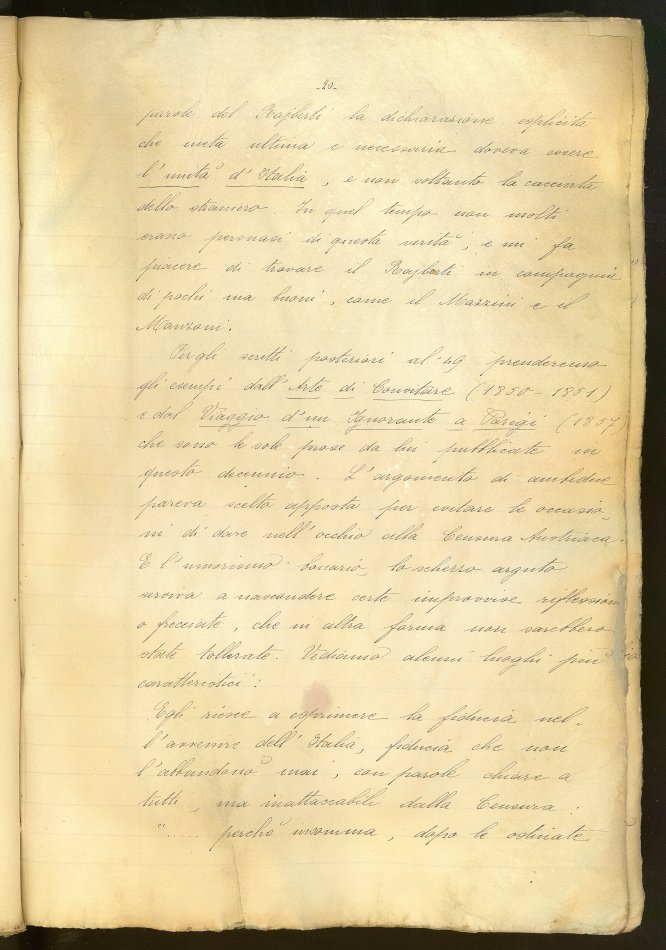 -20-
parole del Rajberti la dichiarazione esplicita
che meta ultima e necessaria doveva essere
l'unità d'Italia, e non soltanto la cacciata
dello straniero. In quel tempo non molti
erano persuasi di questa verità, e mi fa
piacere di trovare il Rajberti in compagnia
di pochi ma buoni, come il Mazzini e il
Manzoni.
Per gli scritti posteriori al '49 prenderemo
gli esempi dall'Arte di Convitare (1850-1851)
e dal Viaggio d'un Ignorante a Parigi (1857)
che sono le sole prose da lui pubblicate in
questo decennio. L'argomento di ambedue
pareva scelto apposta per evitare le occasio
ni di dare nell'occhio alla Censura Austriaca.
E l'umorismo bonario, lo scherzo arguto
serviva a nascondere certe improvvise riflessioni
o frecciate, che in altra forma non sarebbero
state tollerate. Vediamo alcuni luoghi più
caratteristici:
Egli riesce a esprimere la fiducia nel-
l'avvenire dell'Italia, fiducia che non
l'abbandonò mai, con parole chiare a
tutti, ma inattaccabili dalla Censura.
"..... perchè insomma, dopo le ostinate